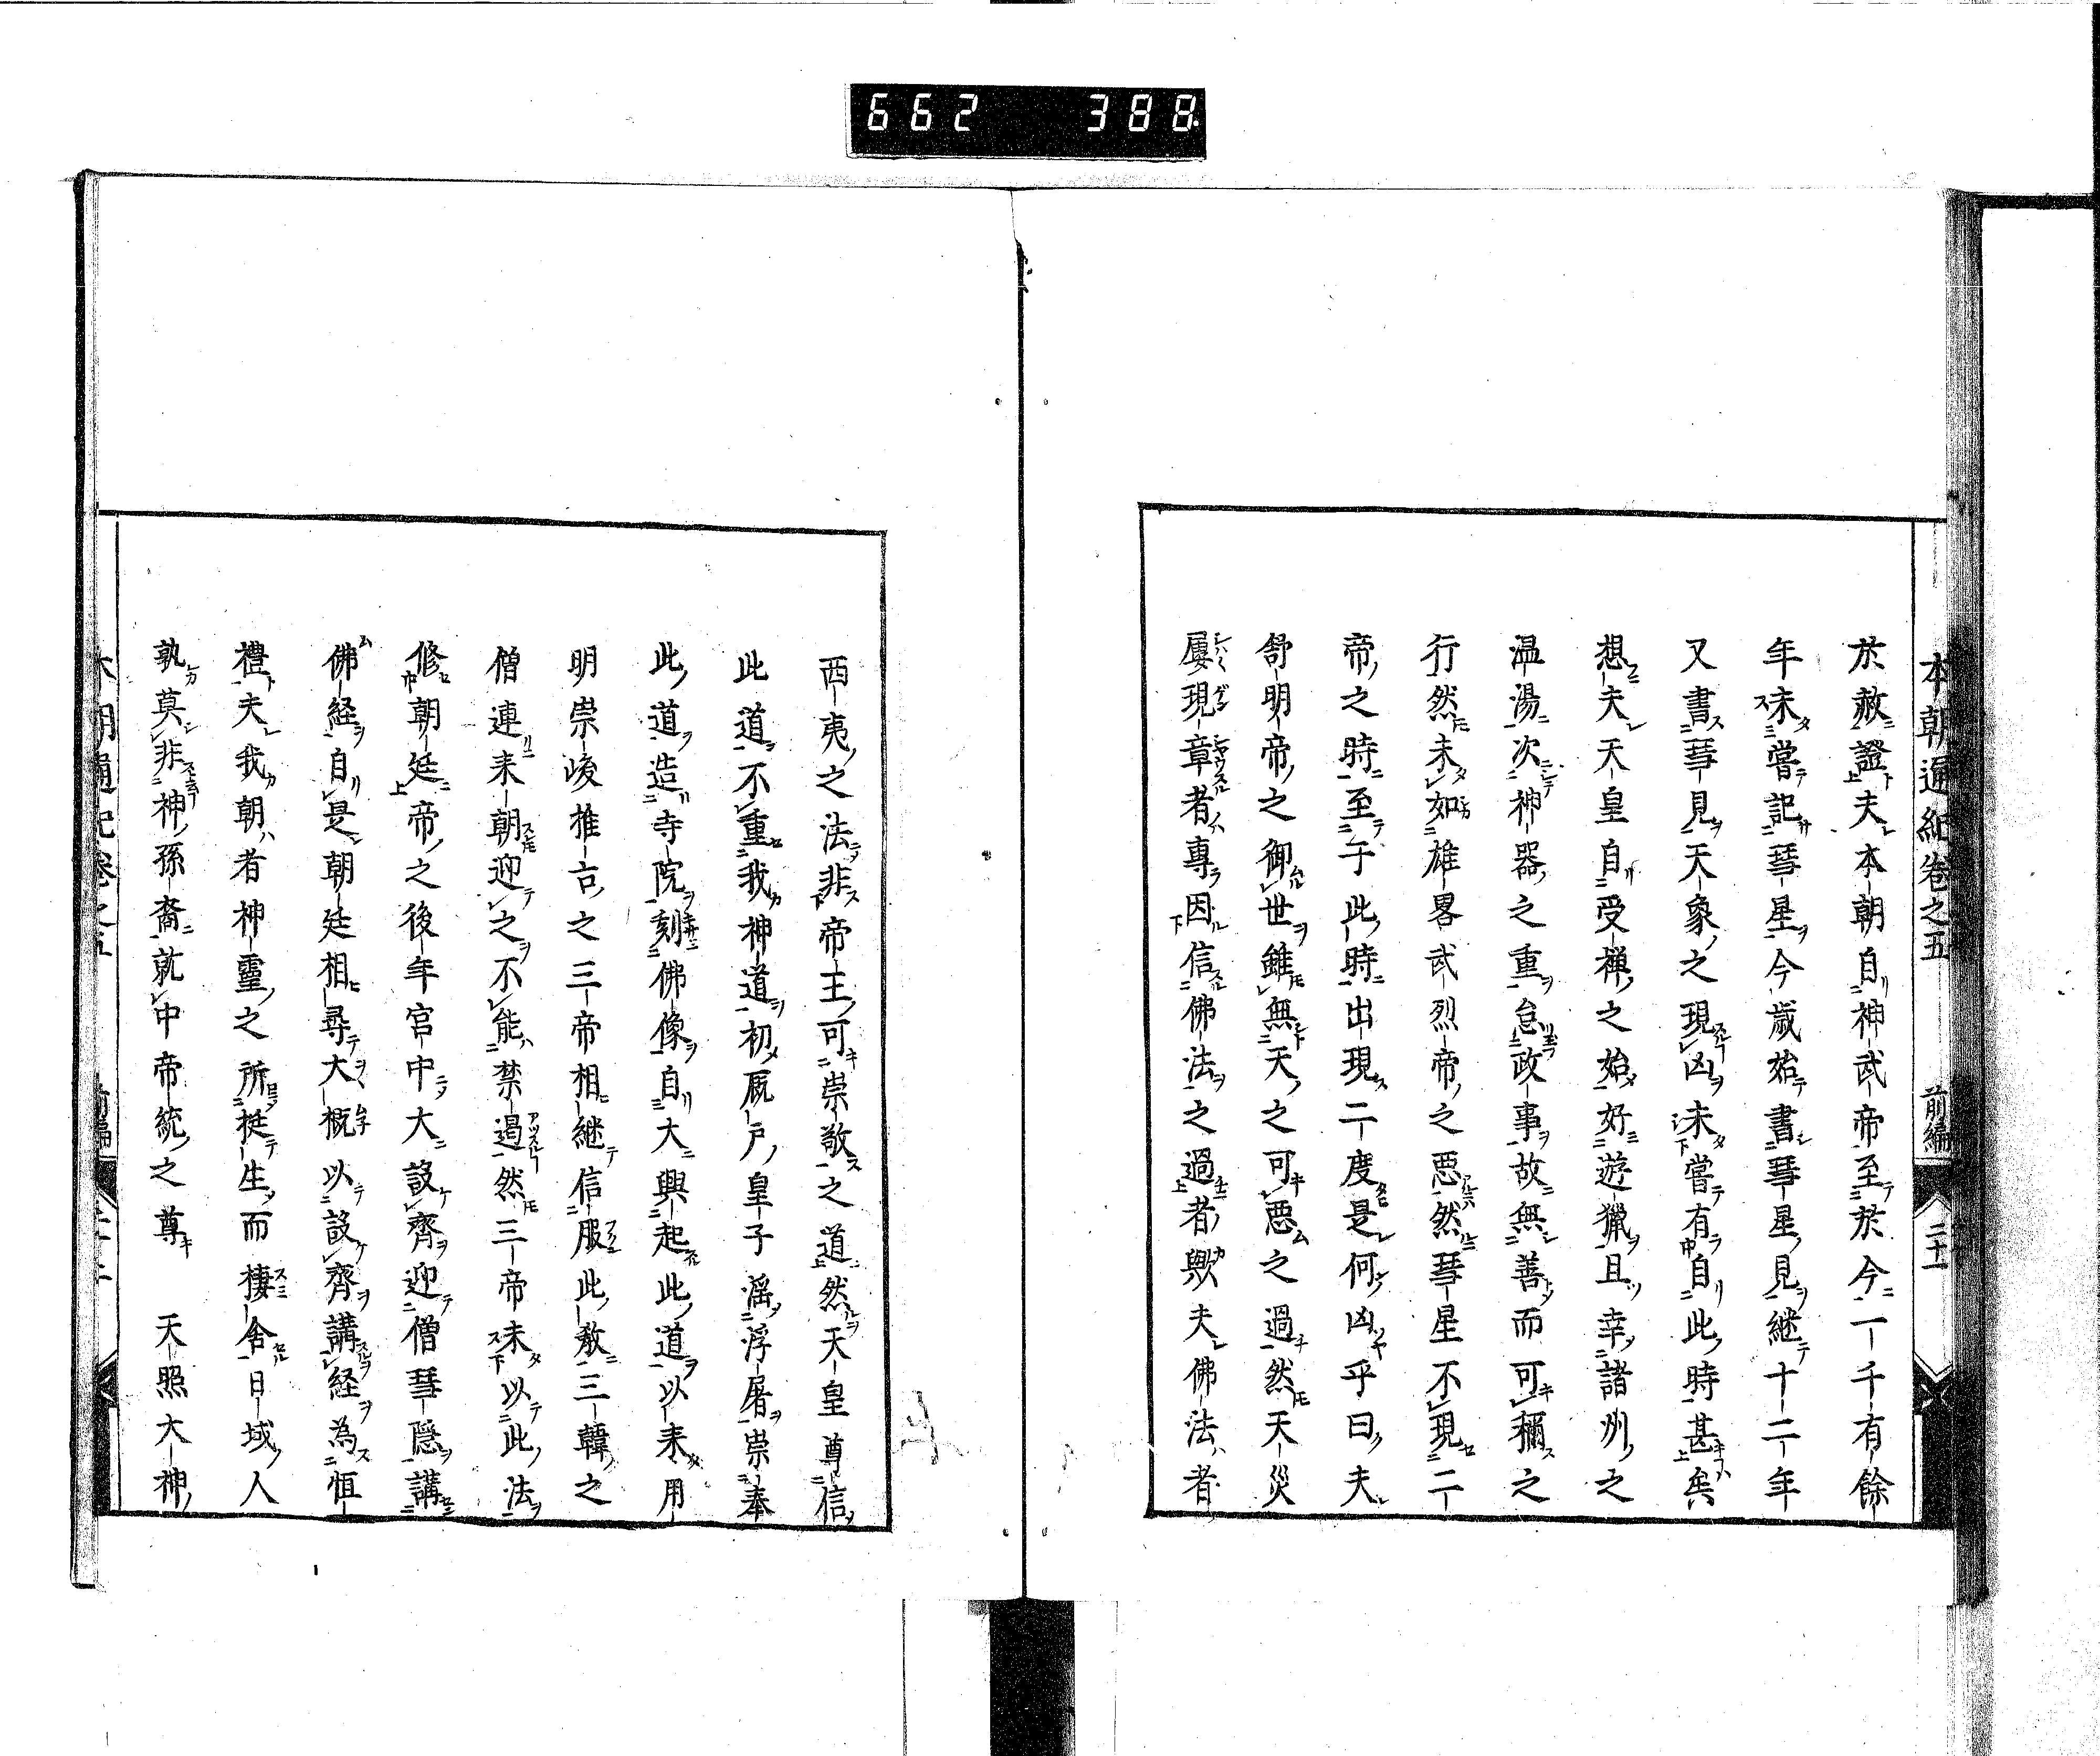 662 388
本朝通紀卷之五 前編 二十一
於赦證夫本朝自神武帝至於今一千有餘
年未嘗記彗星今歳始書彗星見継十二年
又書彗見天象之現凶未嘗有自此時甚矣
想夫天皇自受禅之始好遊獵且幸諸州之
温湯次神器之重怠政事故無善而可稱之
行然未如雄畧武烈帝之惡然彗星不現二
帝之時至于此時出現二度是何凶乎曰夫
舒明帝之御世雖無天之可惡之過然天災
屢現章者專因信佛法之過者歟夫佛法者
西夷之法非帝王可崇敬之道然天皇尊信
此道不重我神道初厩戸皇子滛浮屠崇奉
此道造寺院刻佛像自大興起此道以来用
明崇峻推古之三帝相継信服此教三韓之
僧連来朝迎之不能禁遏然三帝未以此法
修朝廷帝之後年宮中大設齊迎僧彗隠講
佛経自是朝廷相尋大概以設齊講経為恒
禮夫我朝者神靈之所挺生而棲舎日域人
孰莫非神孫裔就中帝統之尊 天照大神
本朝通紀卷之五 前編